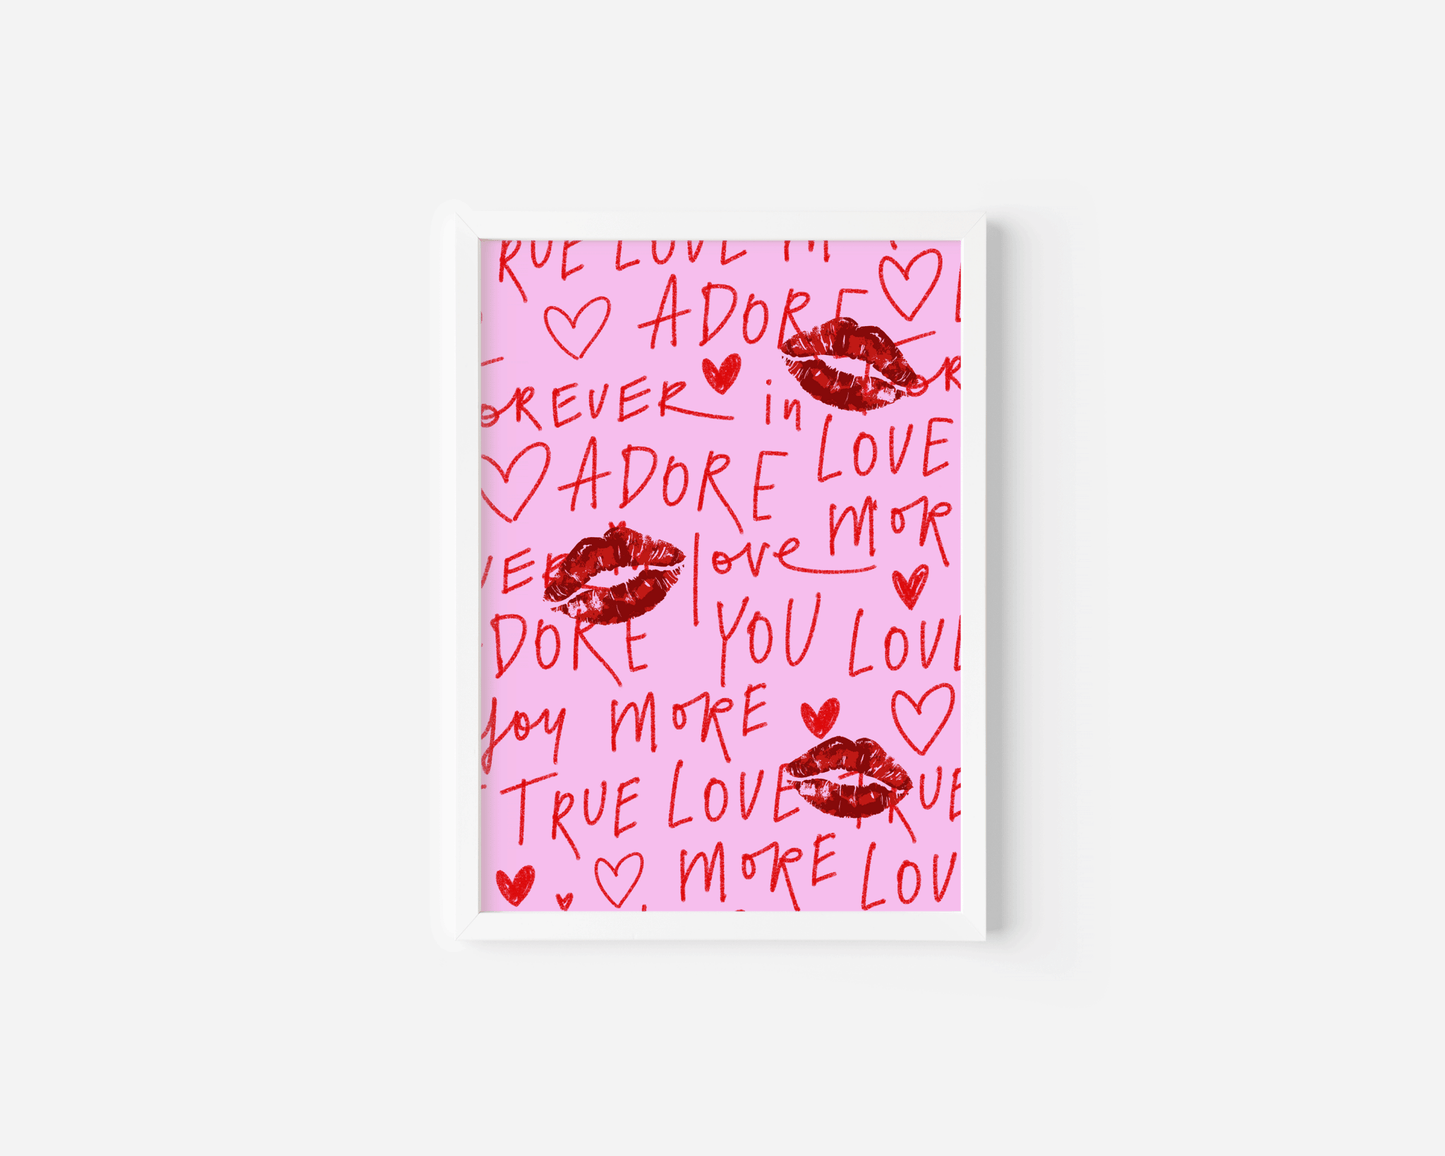 RUE LOVE
ADORE
OREVER in
LOVE
ADORE
MOR
love
DORE YOU LOVE
Joy MORE
TRUE LOVE TRUE
MORE LOV